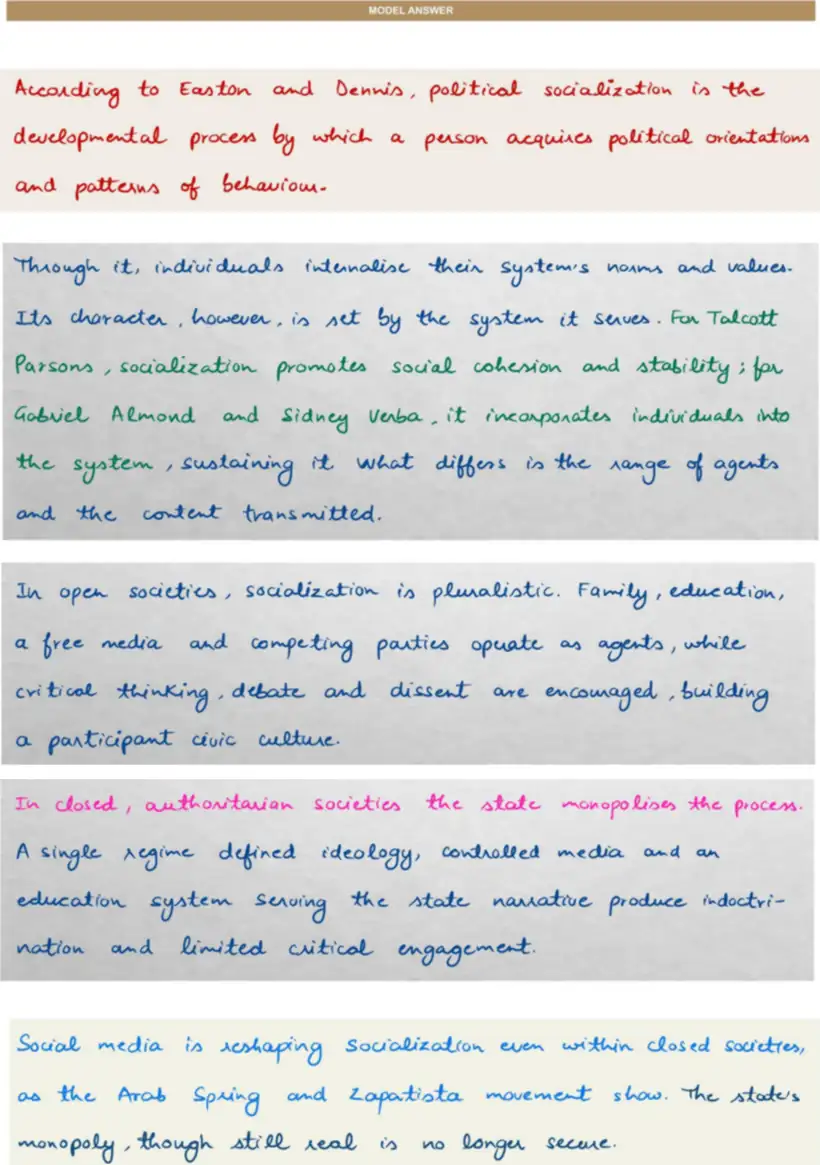 MODEL ANSWER
According to Easton and Dennis, political socialization is the
developmental process by which a person acquires political orientations
and patterns of behaviour.
Through it, individuals internalise their system's norms and values.
Its character, however, is set by the system it serves. For Talcott
Parsons, socialization promotes social cohesion and stability; for
Gabriel Almond and Sidney Verba, it incorporates individuals into
the system, sustaining it. What differs is the range of agents
and the content transmitted.
In open societies, socialization is pluralistic. Family, education,
a free media and competing parties operate as agents, while
critical thinking, debate and dissent are encouraged, building
a participant civic culture.
In closed, authoritarian societies the state monopolises the process.
A single regime defined ideology, controlled media and an
education system serving the state narrative produce indoctri-
nation and limited critical engagement.
Social media is reshaping socialization even within closed societies,
as the Arab Spring and Zapatista movement show. The state's
monopoly, though still real is no longer secure.